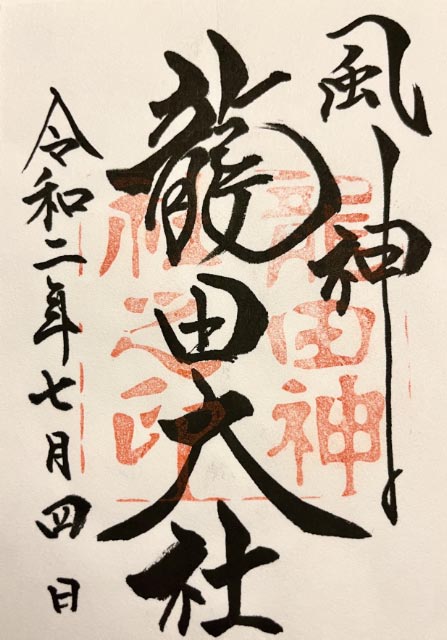 風神
龍田大社
令和二年七月四日
龍田神
社之印